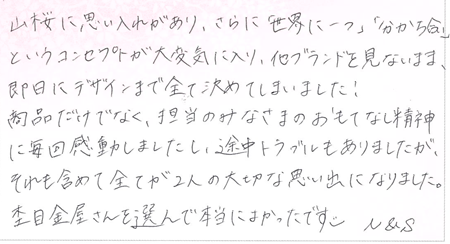 山桜に思い入れがあり、さらに「世界に一つ」「分かち合」
というコンセプトが大変気に入り、他ブランドを見ないまま、
即日にデザインまで全て決めてしまいました!
商品だけでなく、担当のみなさまのおもてなし精神
に毎回感動しましたし、途中トラブルもありましたが、
それも含めて全てが2人の大切な思い出になりました。
杢目金屋さんを選んで本当によかったです N&S